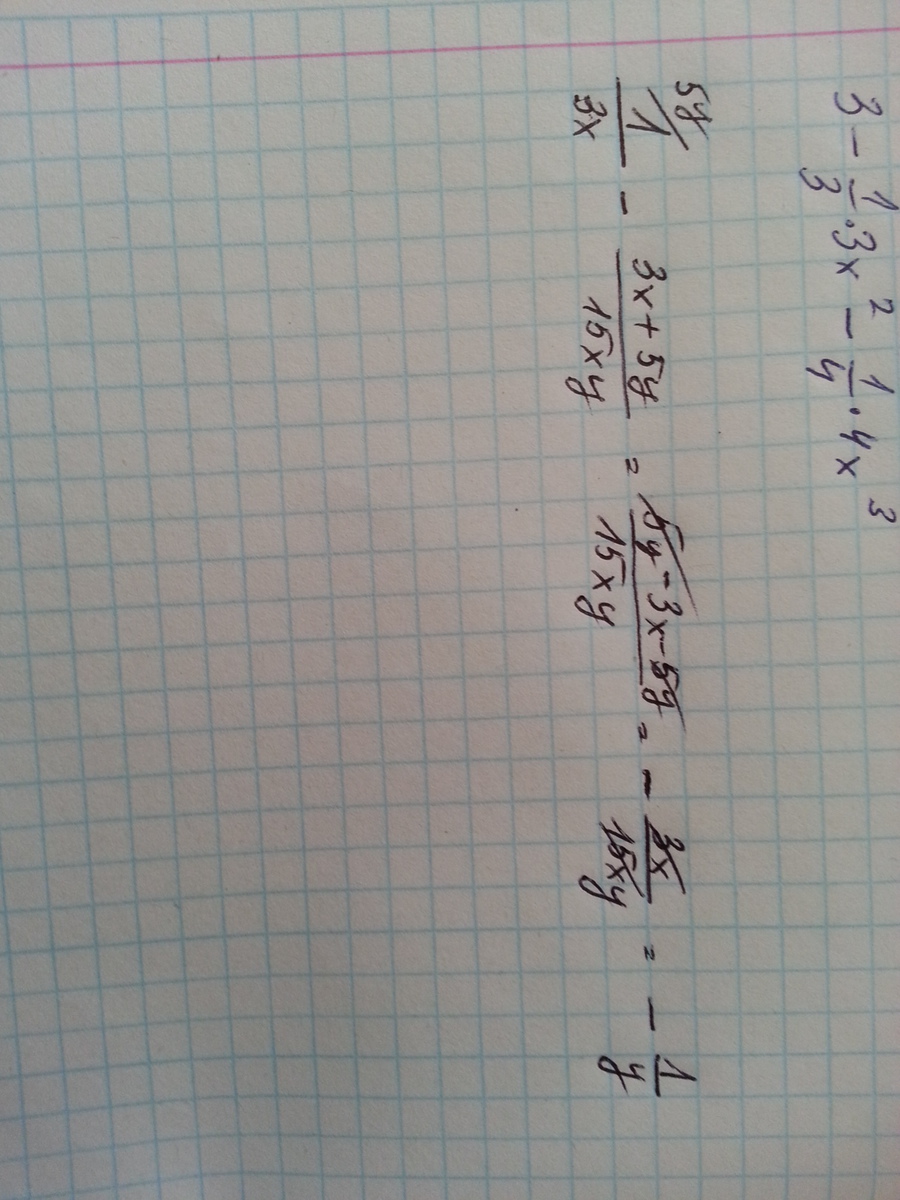 3 - 1/3 · 3x² - 1/4 · 4x³
5y/ 1/3x - (3x + 5y)/15xy = (5y - 3x - 5y)/15xy = - 3x/15xy = - 1/y